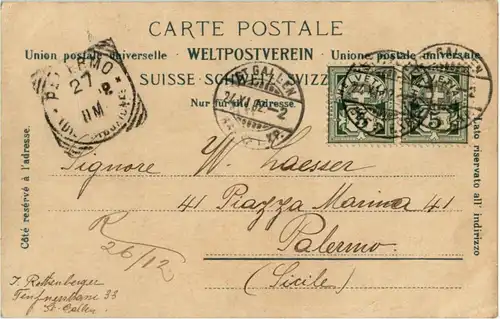 CARTE POSTALE
Union postale universelle WELTPOSTVEREIN Unione postale universale
SUISSE SCHWEIZ SVIZZERA
Nur für die Adresse
PALERMO
27
ST. GALLEN
24.XII.02.-2
ST. GALLEN
HELVETIA HELVETIA
5 5
Côté réservé à l'adresse.
Lato riservato all' indirizzo
Signore W. Laesser
41 Piazza Marina 41
Palermo.
(Sicile)
R
26/12
J. Rothenberger
33
St. Gallen